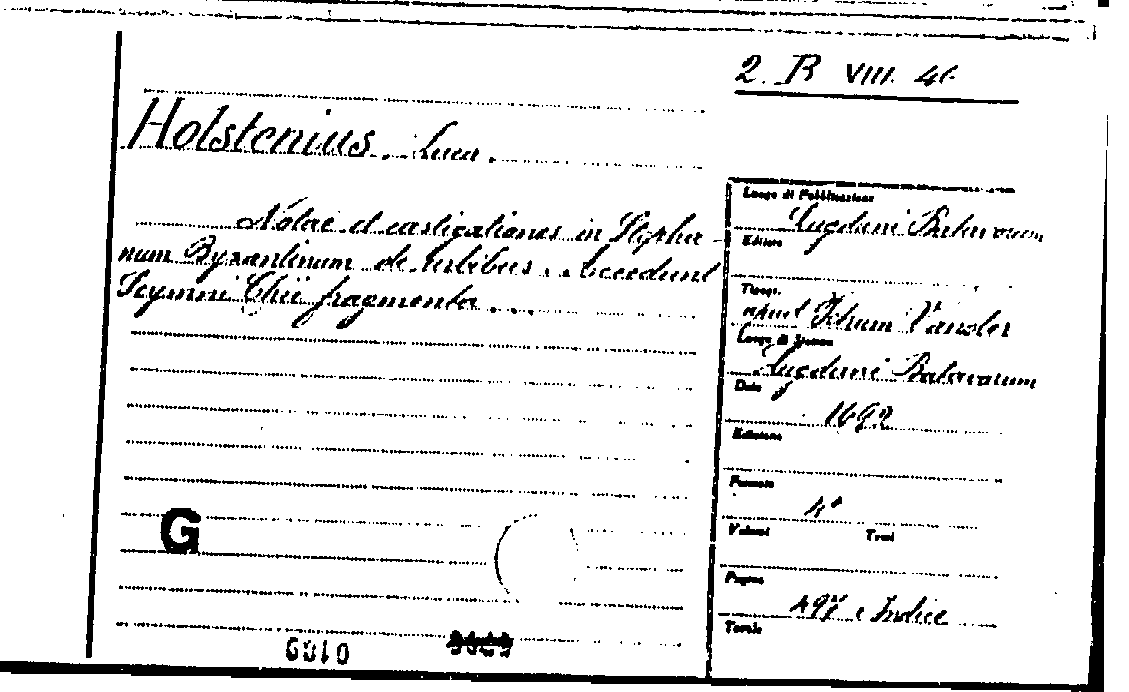 2. B VIII. 46
Holstenius, Luca.
Notae et castigationes in Stepha-
num Byzantinum de Urbibus. Accedunt
Scymni Chii fragmenta.
Luogo di Pubblicazione
Lugduni Batavorum
Editore
Tipogr.
apud
Luogo di Stampa
Lugduni Batavorum
Data
1692
Edizione
Formato
4°
Volumi Tomi
Pagine
497 e Indice
Tavole
G